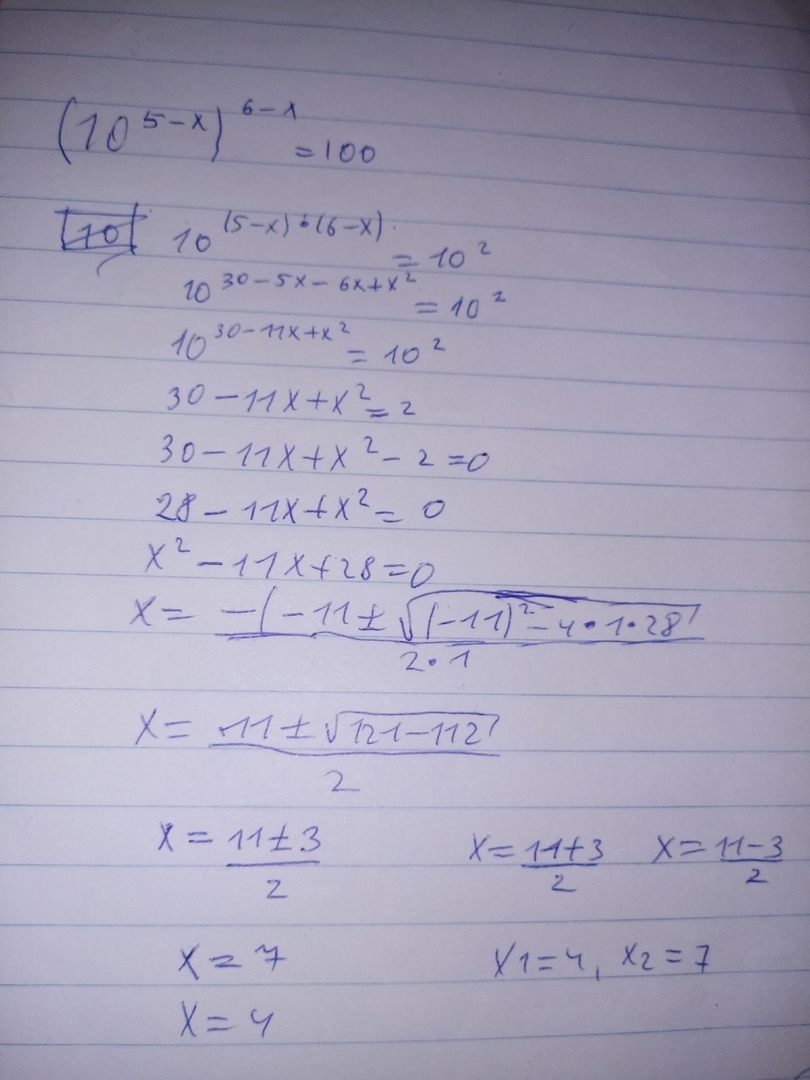 (10^(5-x))^(6-x) = 100
10 10^((5-x)·(6-x)) = 10^2
10^(30-5x-6x+x^2) = 10^2
10^(30-11x+x^2) = 10^2
30-11x+x^2=2
30-11x+x^2-2=0
28-11x+x^2=0
x^2-11x+28=0
x= (-(-11±√((-11)^2-4·1·28))/(2·1)
x= (11±√(121-112))/2
x=(11±3)/2 x=(11+3)/2 x=(11-3)/2
x=7 x1=4, x2=7
x=4